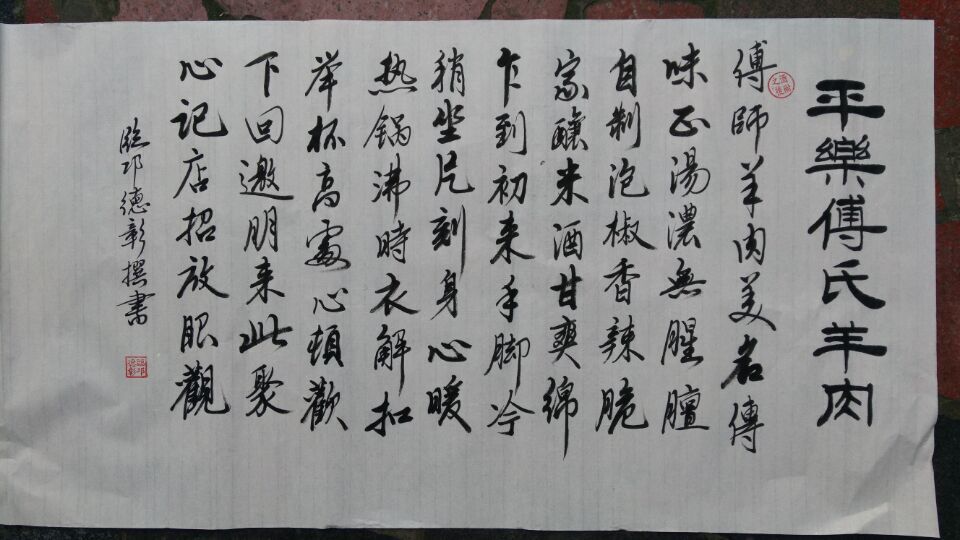 平樂傅氏羊肉
傅師羊肉美名傳
味正湯濃無腥膻
自制泡椒香辣脆
家釀米酒甘爽綿
乍到初来手脚冷
稍坐片刻身心暖
热锅沸時衣解扣
举杯高處心頓歡
下回邀朋来此聚
心记店招放眼觀
臨邛德彰撰書